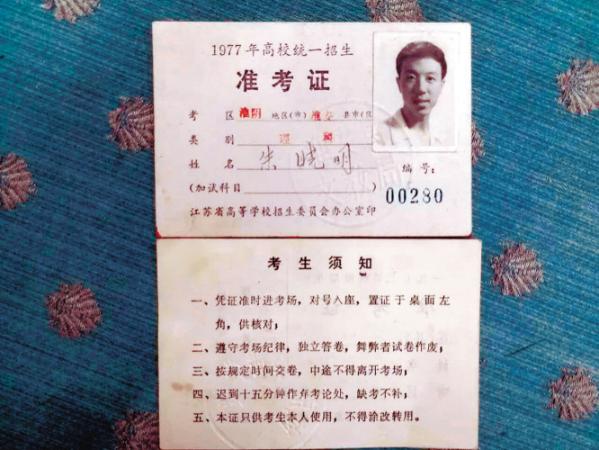 1977年高校统一招生
准考证
考 区 淮阴 地区(市) 淮安 县市(区
类 别
姓 名 朱晓明
编号:
(加试科目)
00280
江苏省高等学校招生委员会办公室印
考生须知
一、凭证准时进考场，对号入座，置证于桌面左
角，供核对；
二、遵守考场纪律，独立答卷，舞弊者试卷作废；
三、按规定时间交卷，中途不得离开考场；
四、迟到十五分钟作弃考论处，缺考不补；
五、本证只供考生本人使用，不得涂改转用。